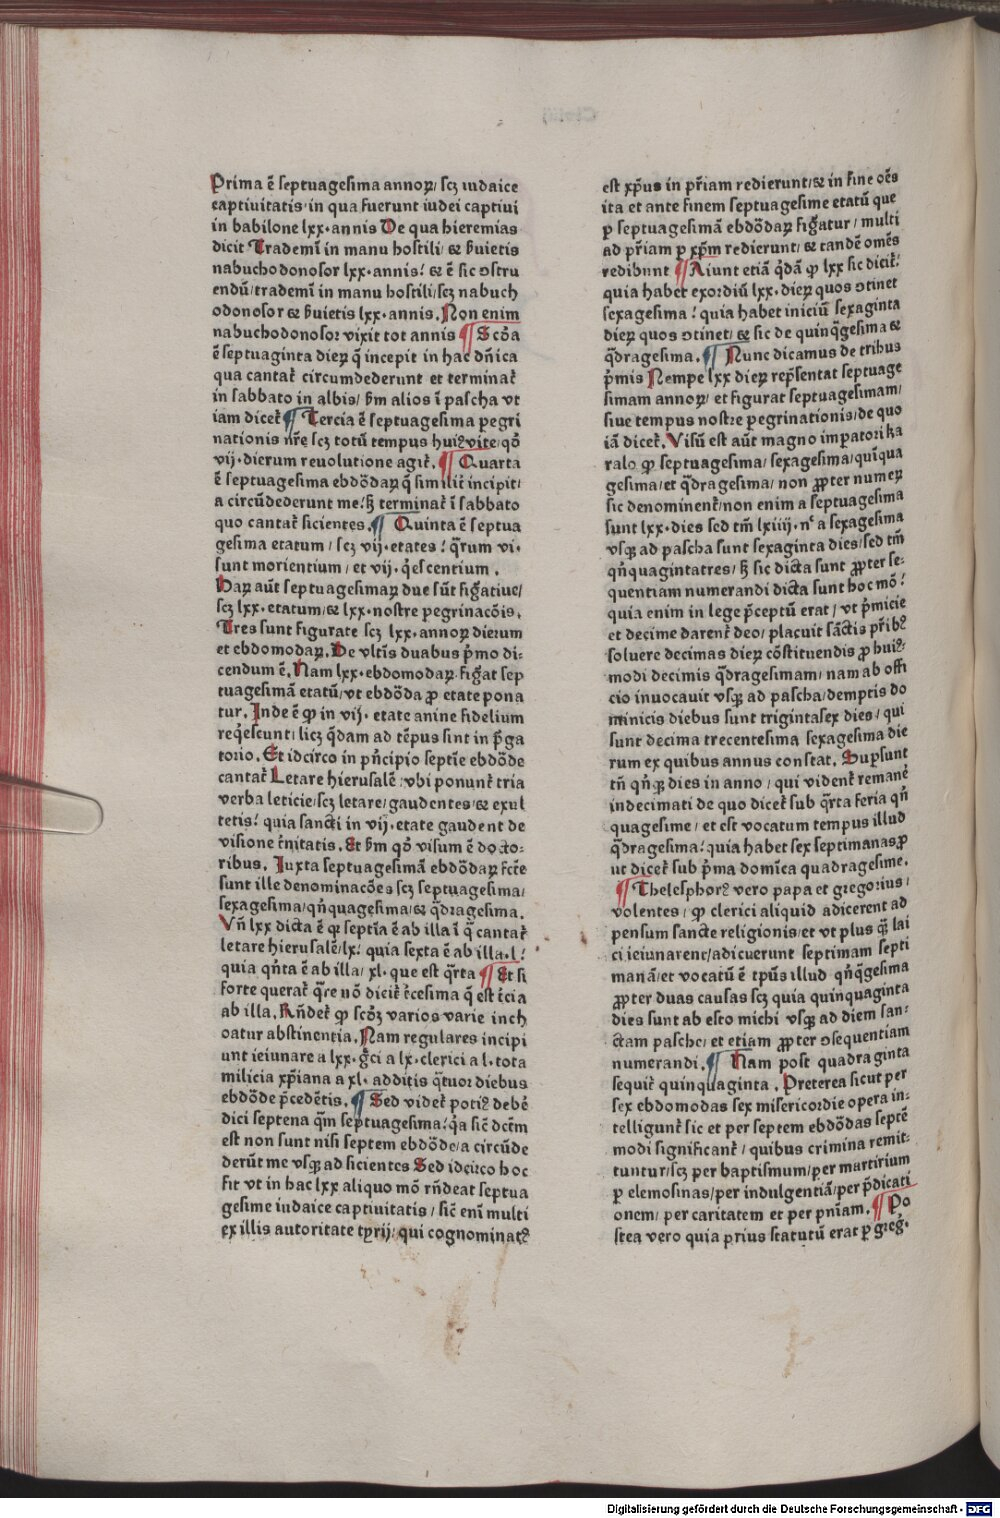 Prima ē septuagesima annoꝝ/ scꝫ iudaice
captiuitatis/ in qua fuerunt iudei captiui
in babilone lxx. annis De qua hieremias
dicit Trademī in manu hostili/ ⁊ ẜuietis
nabuchodonosor lxx. annis! ⁊ ē sic ↄstru
endū/ trademī in manu hostili/ scꝫ nabuch
odonosor ⁊ ẜuietis lxx. annis. Non enim
nabuchodonosor vixit tot annis ¶ Scōa
ē septuaginta dieꝝ q̄ incepit in hac dn̄ica
qua cantat᷑ circumdederunt et terminat᷑
in sabbato in albis/ ẜm alios ī pascha vt
iam dicet᷑ ¶ Tercia ē septuagesima pegri
nationis nr̄e scꝫ totū tempus huiꝰ vite/ qō
vij. dierum reuolutione agit᷑. ¶ Quarta
ē septuagesima ebdōdaꝝ q̄ similit᷑ incipit/
a circūdederunt me! ꝫ terminat᷑ ī sabbato
quo cantat᷑ sicientes. ¶ Quinta ē septua
gesima etatum/ scꝫ vij. etates! q̄rum vi.
sunt morientium/ et vij. q̇escentium.
Haꝝ aūt septuagesimaꝝ due sūt figˀatiue/
scꝫ lxx. etatum/ ⁊ lxx. nostre pegrinacōis.
Tres sunt figurate scꝫ lxx. annoꝝ dierum
et ebdomodaꝝ. De vltīs duabus p̄mo di-
cendum ē. Nam lxx. ebdomodaꝝ figˀat sep
tuagesimā etatū/ vt ebdōda ꝓ etate pona
tur. Inde ē ꝙ in vij. etate anine fidelium
req̇escunt/ licꝫ q̇dam ad tēpus sint in p̄ga
torio. Et idcirco in pn̄cipio septīe ebdōde
cantat᷑ Letare hierusalē! vbi ponunt᷑ tria
verba leticie/ scꝫ letare/ gaudentes/ ⁊ exul
tetis! quia sancti in vij. etate gaudent de
visione t᷑nitatis. Et ẜm qō visum ē docto-
ribus. Iuxta septuagesimā ebdōdaꝝ fcte
sunt ille denominacōes scꝫ septuagesima/
sexagesima/ qn̄quagesima/ ⁊ q̄dragesima.
Vn̄ lxx dicta ē qꝛ septīa ē ab illa ī q̄ cantat᷑
letare hierusalē/ lx! quia sexta ē ab illa. l!
quia qn̄ta ē ab illa/ xl. que est q̄rta ¶ Et si
forte querat᷑ q̄re nō dicit᷑ t᷑cesima q̄ est t᷑cia
ab illa. Rn̄det᷑ ꝙ scōꝫ varios varie inch
oatur abstinentia. Nam regulares incipi
unt ieiunare a lxx. g̊ci a lx. clerici a l. tota
milicia xp̄iana a xl. additis q̄tuor diebus
ebdōde p̄cedētis. ¶ Sed videt᷑ potiꝰ debē
dici septena q̄m septuagesima! q̇a sic̄ dcтm
est non sunt nisi septem ebdōde/ a circūde
derūt me vsqꝫ ad sicientes Sed idcirco hoc
fit vt in hac lxx aliquo mō rn̄deat septua
gesime iudaice captiuitatis/ sic̄ enī multi
ex illis autoritate tyrij/ qui cognominatꝰ
est xp̄us in pr̄iam redierunt/ ⁊ in fine oēs
ita et ante finem septuagesime etatū que
ꝑ septuagesimā ebdōdaꝝ figˀatur/ multi
ad pr̄iam ꝑ xp̄m redierunt/ ⁊ tandē omēs
redibunt ¶ Aiunt etiā q̇dā ꝙ lxx sic dicit᷑!
quia habet exordiū lxx. dieꝝ quos ↄtinet
sexagesima! quia habet iniciū sexaginta
dieꝝ quos ↄtinet/ ⁊ sic de quinq̄gesima ⁊
q̄dragesima. ¶ Nunc dicamus de tribus
p̄mis Nempe lxx dieꝝ rep̄sentat septuage
simam annoꝝ/ et figurat septuagesimam/
siue tempus nostre pegrinationis/ de quo
iā dicet᷑. Visū est aūt magno imperatori ka
ralo ꝙ septuagesima/ sexagesima/ quīqua
gesima/ et q̄dragesima/ non ꝓpter numeꝝ
sic denominent᷑/ non enim a septuagesima
sunt lxx. dies sed tm̄ lxiiij. nͨ a sexagesima
vsqꝫ ad pascha sunt sexaginta dies/ sed tm̄
qn̄quagintatres/ ꝫ sic dicta sunt ꝓpter se-
quentiam numerandi dicta sunt hoc mō!
quia enim in lege p̄ceptū erat/ vt p̄micie
et decime darent᷑ deo/ placuit sāctis pr̄ibꝰ
soluere decimas dieꝝ cōstituendis ꝓ huiꝰ
modi decimis q̄dragesimam/ nam ab offi
cio inuocauit vsqꝫ ad pascha/ demptis do
minicis diebus sunt trigintasex dies/ qui
sunt decima trecentesima sexagesima die
rum ex quibus annus constat. Suꝑsunt
tn̄ qn̄qꝫ dies in anno/ qui vident᷑ remanē
indecimati de quo dicet᷑ sub q̄rta feria qn̄
quagesime/ et est vocatum tempus illud
q̄dragesima! quia habet sex septimanas ꝓ
ut dicet᷑ sub p̄ma domīca quadragesime.
¶ Thelesphorꝰ vero papa et gregorius/
volentes/ ꝙ clerici aliquid adicerent ad
pensum sancte religionis/ et vt plus q̄ꝫ lai
ci ieiunarent/ adiecerunt septimam septi
manā/ et vocatū ē tpūs illud qn̄q̄gesima
ꝓpter duas causas scꝫ quia quinquaginta
dies sunt ab esto michi vsqꝫ ad diem san-
ctam pasche/ et etiam ꝓpter ↄsequentiam
numerandi. ¶ Nam post quadraginta
sequit᷑ quinquaginta. Preterea sicut per
sex ebdomodas sex misericordie opera in-
telligunt᷑ sic et per septem ebdōdas septē
modi significant᷑/ quibus crimina remit-
tuntur/ scꝫ per baptismum/ per martirium
ꝑ elemosinas/ per indulgentiā/ per p̄dicati
onem/ per caritatem et per pn̄iam. ¶ Po
stea vero quia prius statutū erat ꝑ greg̊.
Digitalisierung gefördert durch die Deutsche Forschungsgemeinschaft - DFG